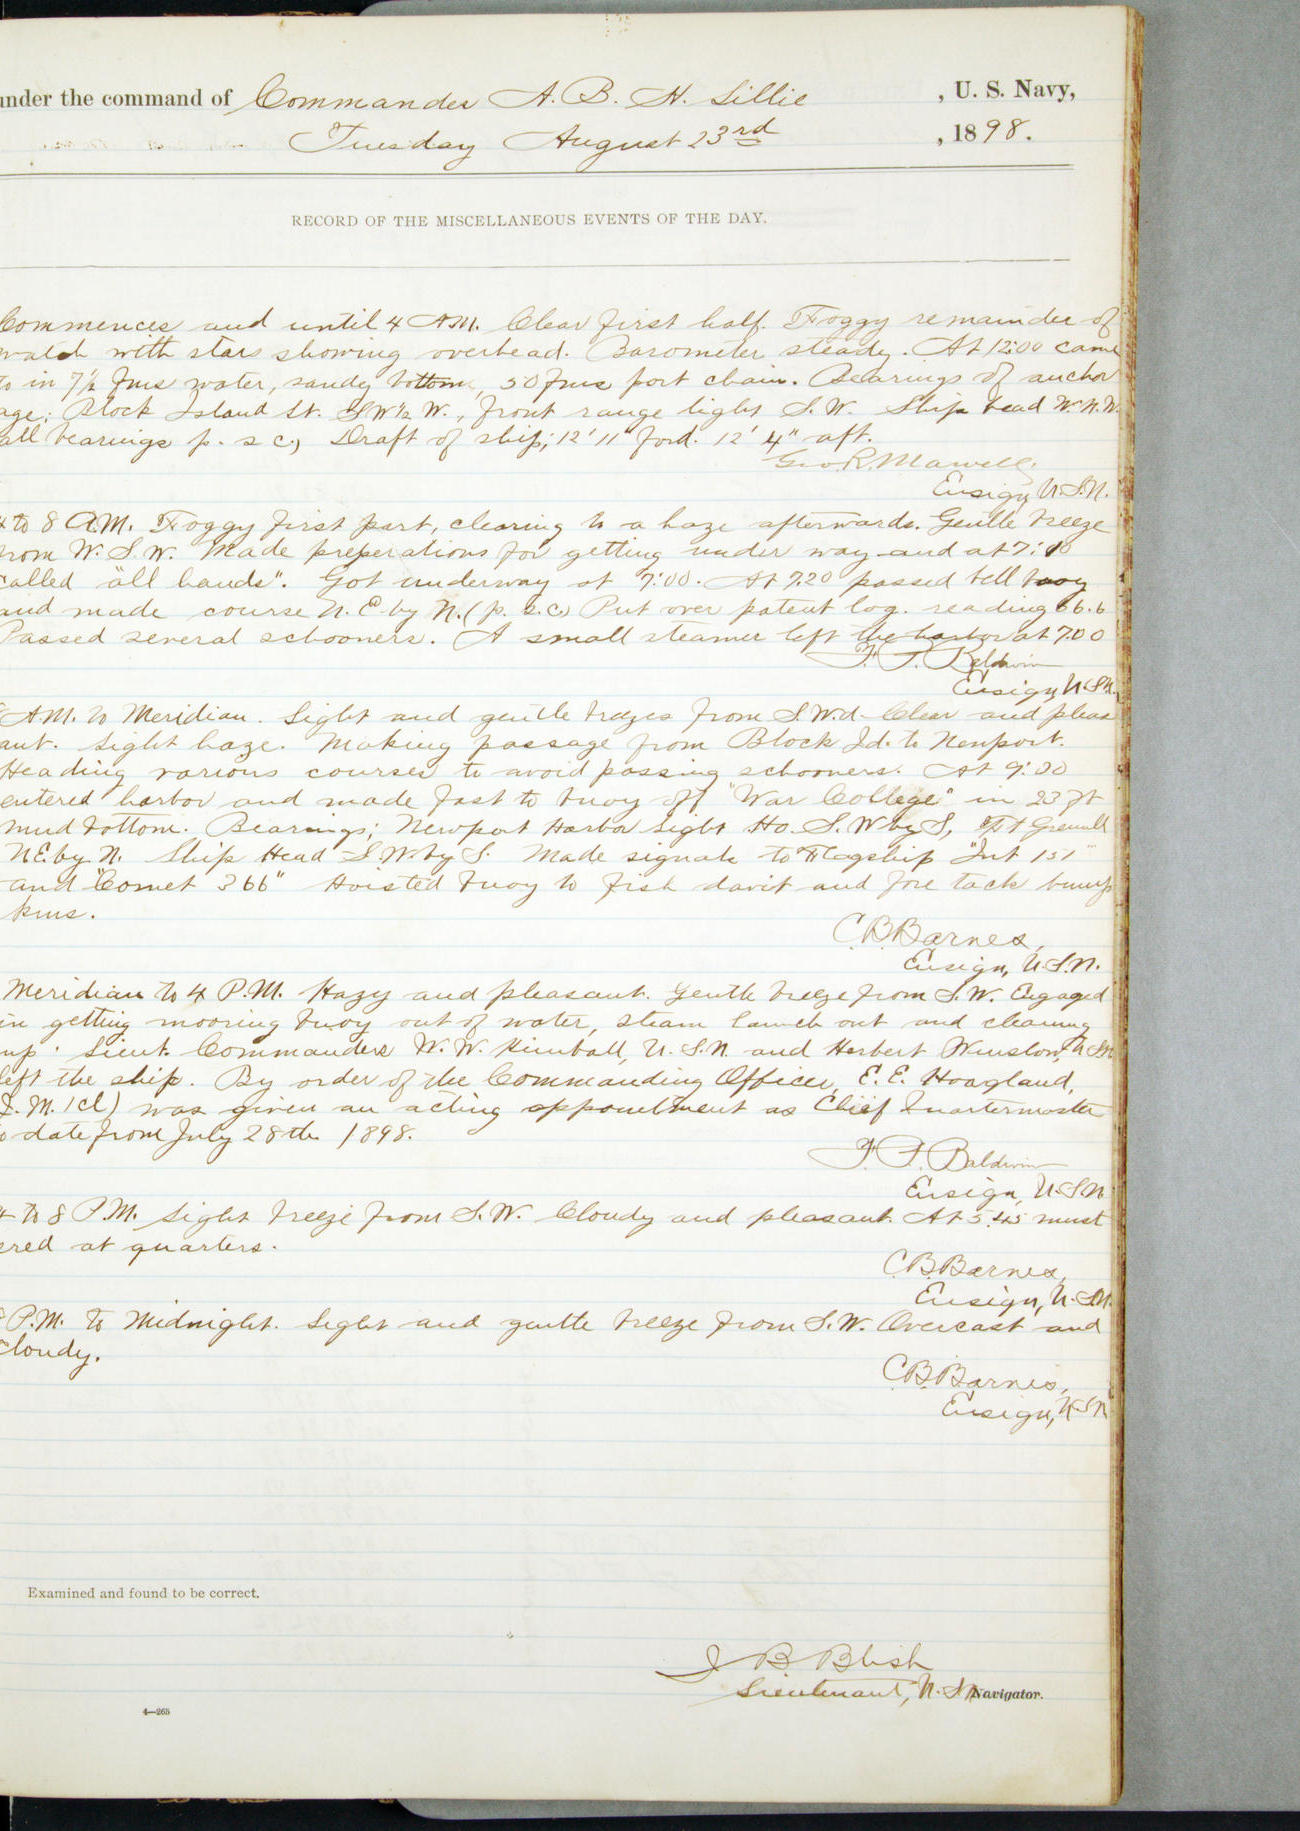 under the command of Commander A. B. H. Lillie , U. S. Navy,
Tuesday August 23rd , 1898.
RECORD OF THE MISCELLANEOUS EVENTS OF THE DAY.
Commences and until 4 A.M. Clear first half. Foggy remainder of
watch with stars showing overhead. Barometer steady. At 12:00 came
to in 7½ fms water, sandy bottom, 50 fms port chain. Bearings of anchor
age: Block Island Lt. SW½W., front range light S.W. Ship head W.N.W.
all bearings p. s. c.) Draft of ship; 12' 11" ford. 12' 4" aft.
Geo. R. Marvell,
Ensign U.S.N.
4 to 8 A.M. Foggy first part, clearing to a haze afterwards. Gentle breeze
from W.S.W. Made preperations for getting under way and at
called "all hands". Got underway at 7:00. At 7.20 passed bell buoy
and made course N. E. by N. (p. s. c.) Put over patent log. reading 66.6
Passed several schooners. A small steamer left the harbor at 7.00
F. P. Baldwin
Ensign, U.S.N.
A.M. to Meridian. Light and gentle breezes from S.W.d. Clear and pleas
ant. Light haze. Making passage from Block Id. to Newport.
Heading various courses to avoid passing schooners. At 9:00
entered harbor and made fast to buoy off "War College" in 23 ft
mud bottom. Bearings; Newport Harbor Light Ho. S.W by S, Ft
N.E. by N. Ship Head S.W. by S. Made signals to Flagship "Int 151"
and "Comet 366" Hoisted buoy to fish davit and fore tack bump
kins.
C. B. Barnes,
Ensign, U.S.N.
Meridian to 4 P.M. Hazy and pleasant. Gentle breeze from S.W. Engaged
in getting mooring buoy out of water, steam launch out and cleaning
up. Lieut. Commanders W. W. Kimball, U.S.N. and Herbert Winslow, U.S.N.
left the ship. By order of the Commanding Officer, E. E. Hoagland,
Q. M. 1cl) was given an acting appointment as Chief Quartermaster
to date from July 28th 1898.
F. P. Baldwin
Ensign, U.S.N.
4 to 8 P.M. Light breeze from S.W. Cloudy and pleasant. At 5.45 must
ered at quarters.
C. B. Barnes,
Ensign, U.S.N.
8 P.M. to Midnight. Light and gentle breeze from S.W. Overcast and
cloudy.
C. B. Barnes,
Ensign, U.S.N.
Examined and found to be correct.
J B Blish
Lieutenant, U.S.N. Navigator.
4—265